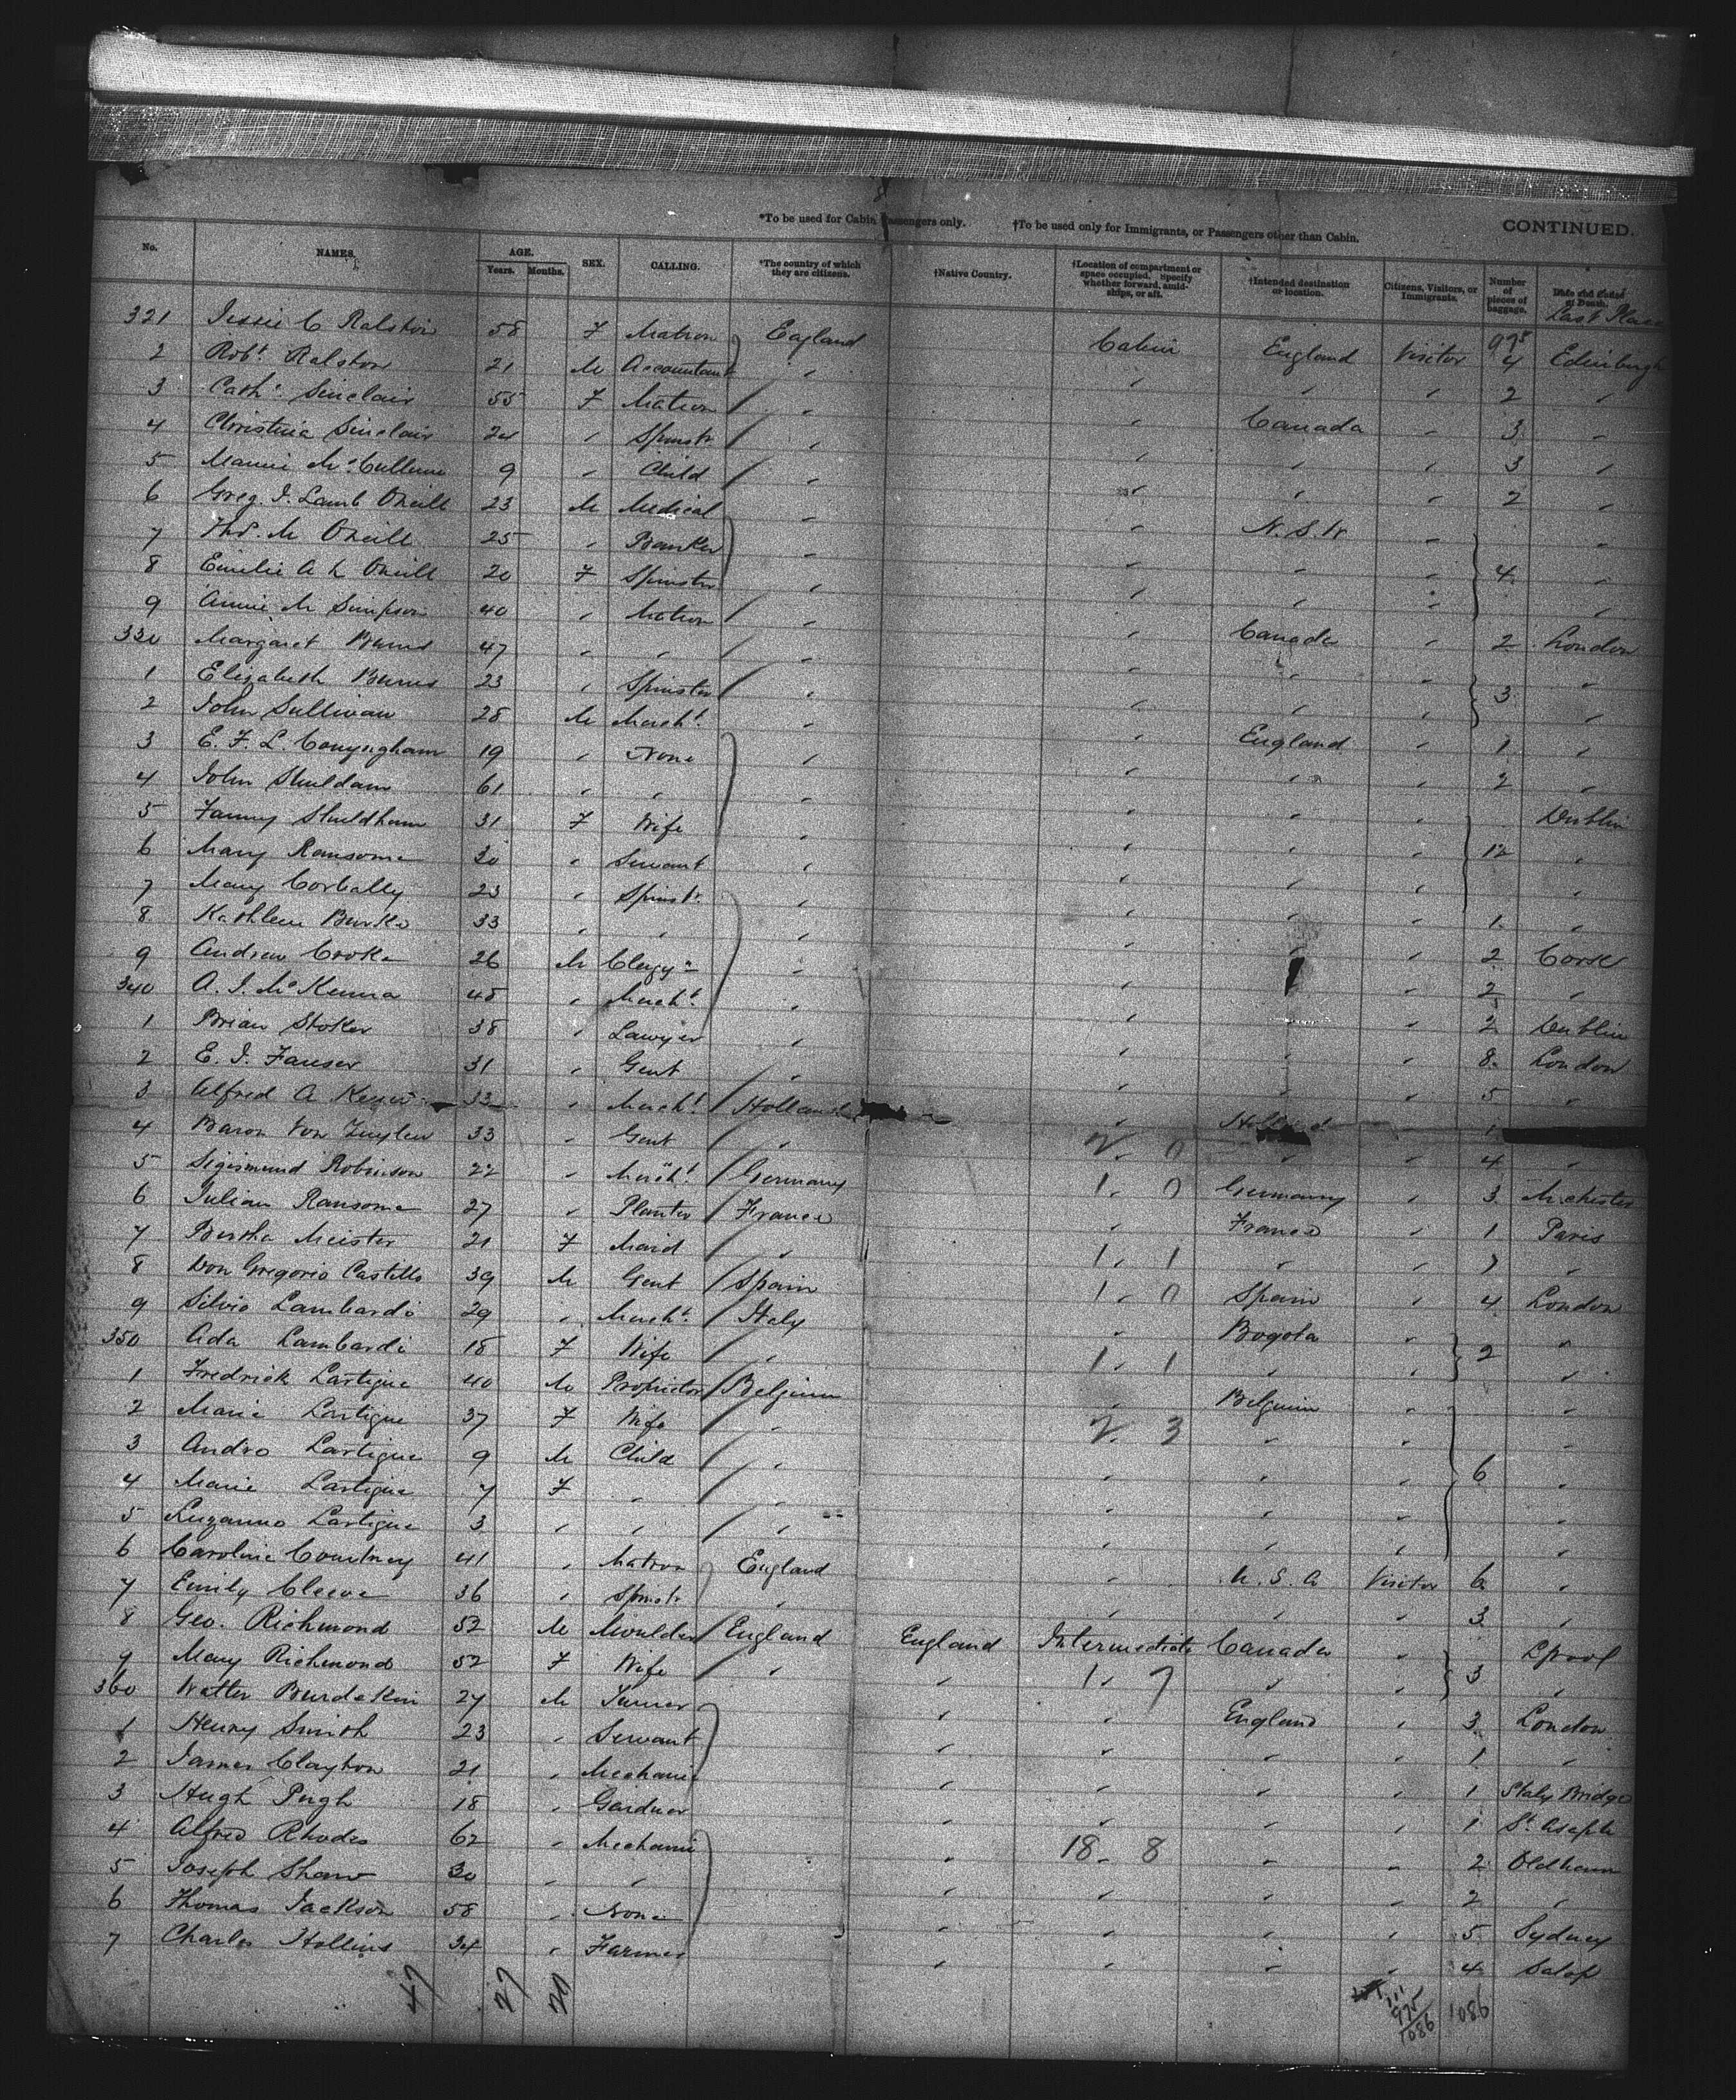 *To be used for Cabin Passengers only. †To be used only for Immigrants, or Passengers other than Cabin. CONTINUED.
No. NAMES. AGE. Years. Months. SEX. CALLING. *The country of which they are citizens. †Native Country. †Location of compartment or space occupied, specify whether forward, amidships, or aft. †Intended destination or location. Citizens, Visitors, or Immigrants. Number of pieces of baggage. Date and Cause of Death. Last Place
975
321 Jessie C Ralston 58 F Matron England Cabin England Visitor 4 Edinburgh
2 Robt. Ralston 21 M Accountant " " " " 2 "
3 Cath. Sinclair 55 F Matron " " Canada " 3 "
4 Christina Sinclair 24 " Spinstr " " " " 3 "
5 Mamie McCullum 9 " Child " " " " 2 "
6 Greg. J. Lamb Oneill 23 M Medical " " N.S.W " "
7 Thos. M Oneill 25 " Banker " " " " 4 "
8 Emilie A L Oneill 20 F Spinster " " " " "
9 Annie M Simpson 40 " Matron " " Canada " 2 London
330 Margaret Burns 47 " " " " " " "
1 Elizabeth Burns 23 " Spinster " " " " 3 "
2 John Sullivan 28 M Mercht. " " England " 1 "
3 E. F. L. Conyngham 19 " None " " " " 2 "
4 John Shuldam 61 " " " " " " Dublin
5 Fanny Shuldham 31 F Wife " " " " 12 "
6 Mary Ransome 30 " Servant " " " " "
7 Mary Corbally 23 " Spinstr " " " " 1 "
8 Kathleen Burke 33 " " " " " " 2 Cork
9 Andrew Cooke 26 M Clergyn " " " " 2 "
340 A. J. McKenna 48 " Mercht. " " " " 2 Dublin
1 Brian Stoker 38 " Lawyer " " " " 8 London
2 E. J. Fauser 31 " Gent " " " " 5 "
3 Alfred A 33 " Mercht. Holland " Holland 1
4 Baron Von Zuylen 33 " Gent " 2. 0 " " 4 "
5 Sigismund Robinson 22 " Mercht. Germany 1. 0 Germany " 3 Mchester
6 Julian Ransome 27 " Planter France " France " 1 Paris
7 Bertha Meister 21 F Maid " 1. 1 " " "
8 Don Gregorio Castello 39 M Gent Spain 1. 0 Spain " 4 London
9 Silvio Lambardi 29 " Mercht. Italy " Bogota " 2 "
350 Ada Lambardi 18 F Wife " 1. 1 " " "
1 Fredrick Lartigue 40 M Proprietor Belgium " Belgium " "
2 Marie Lartigue 37 F Wife " 2. 3 " " "
3 Andro Lartigue 9 M Child " " " " 6 "
4 Marie Lartigue 7 F " " " " " "
5 Luzanno Lartigue 3 " " " " " " "
6 Caroline Courtney 41 " Matron England " U.S.A Visitor 6 "
7 Emily Cleeve 36 " Spinstr " " " " 3 "
8 Geo. Richmond 52 M Moulder England England Intermediate Canada " Lpool
9 Mary Richmond 52 F Wife " " 1. 7 " " 3 "
360 Walter Burdekin 27 M Turner " " England " 3 London
1 Henry Smith 23 " Servant " " " " 1 "
2 James Clayton 21 " Mechanic " " " " 1 Staly Bridge
3 Hugh Pugh 18 " Gardner " " " " 1 St. Asaph
4 Alfred Rhodes 62 " Mechanic " 18. 8 " " 2 Oldham
5 Joseph Shaw 30 " " " " " " 2 "
6 Thomas Jackson 58 " None " " " " 5 Sydney
7 Charles Hollins 34 " Farmer " " " " 4 Salop
47 27 20 111 1086
975
1086